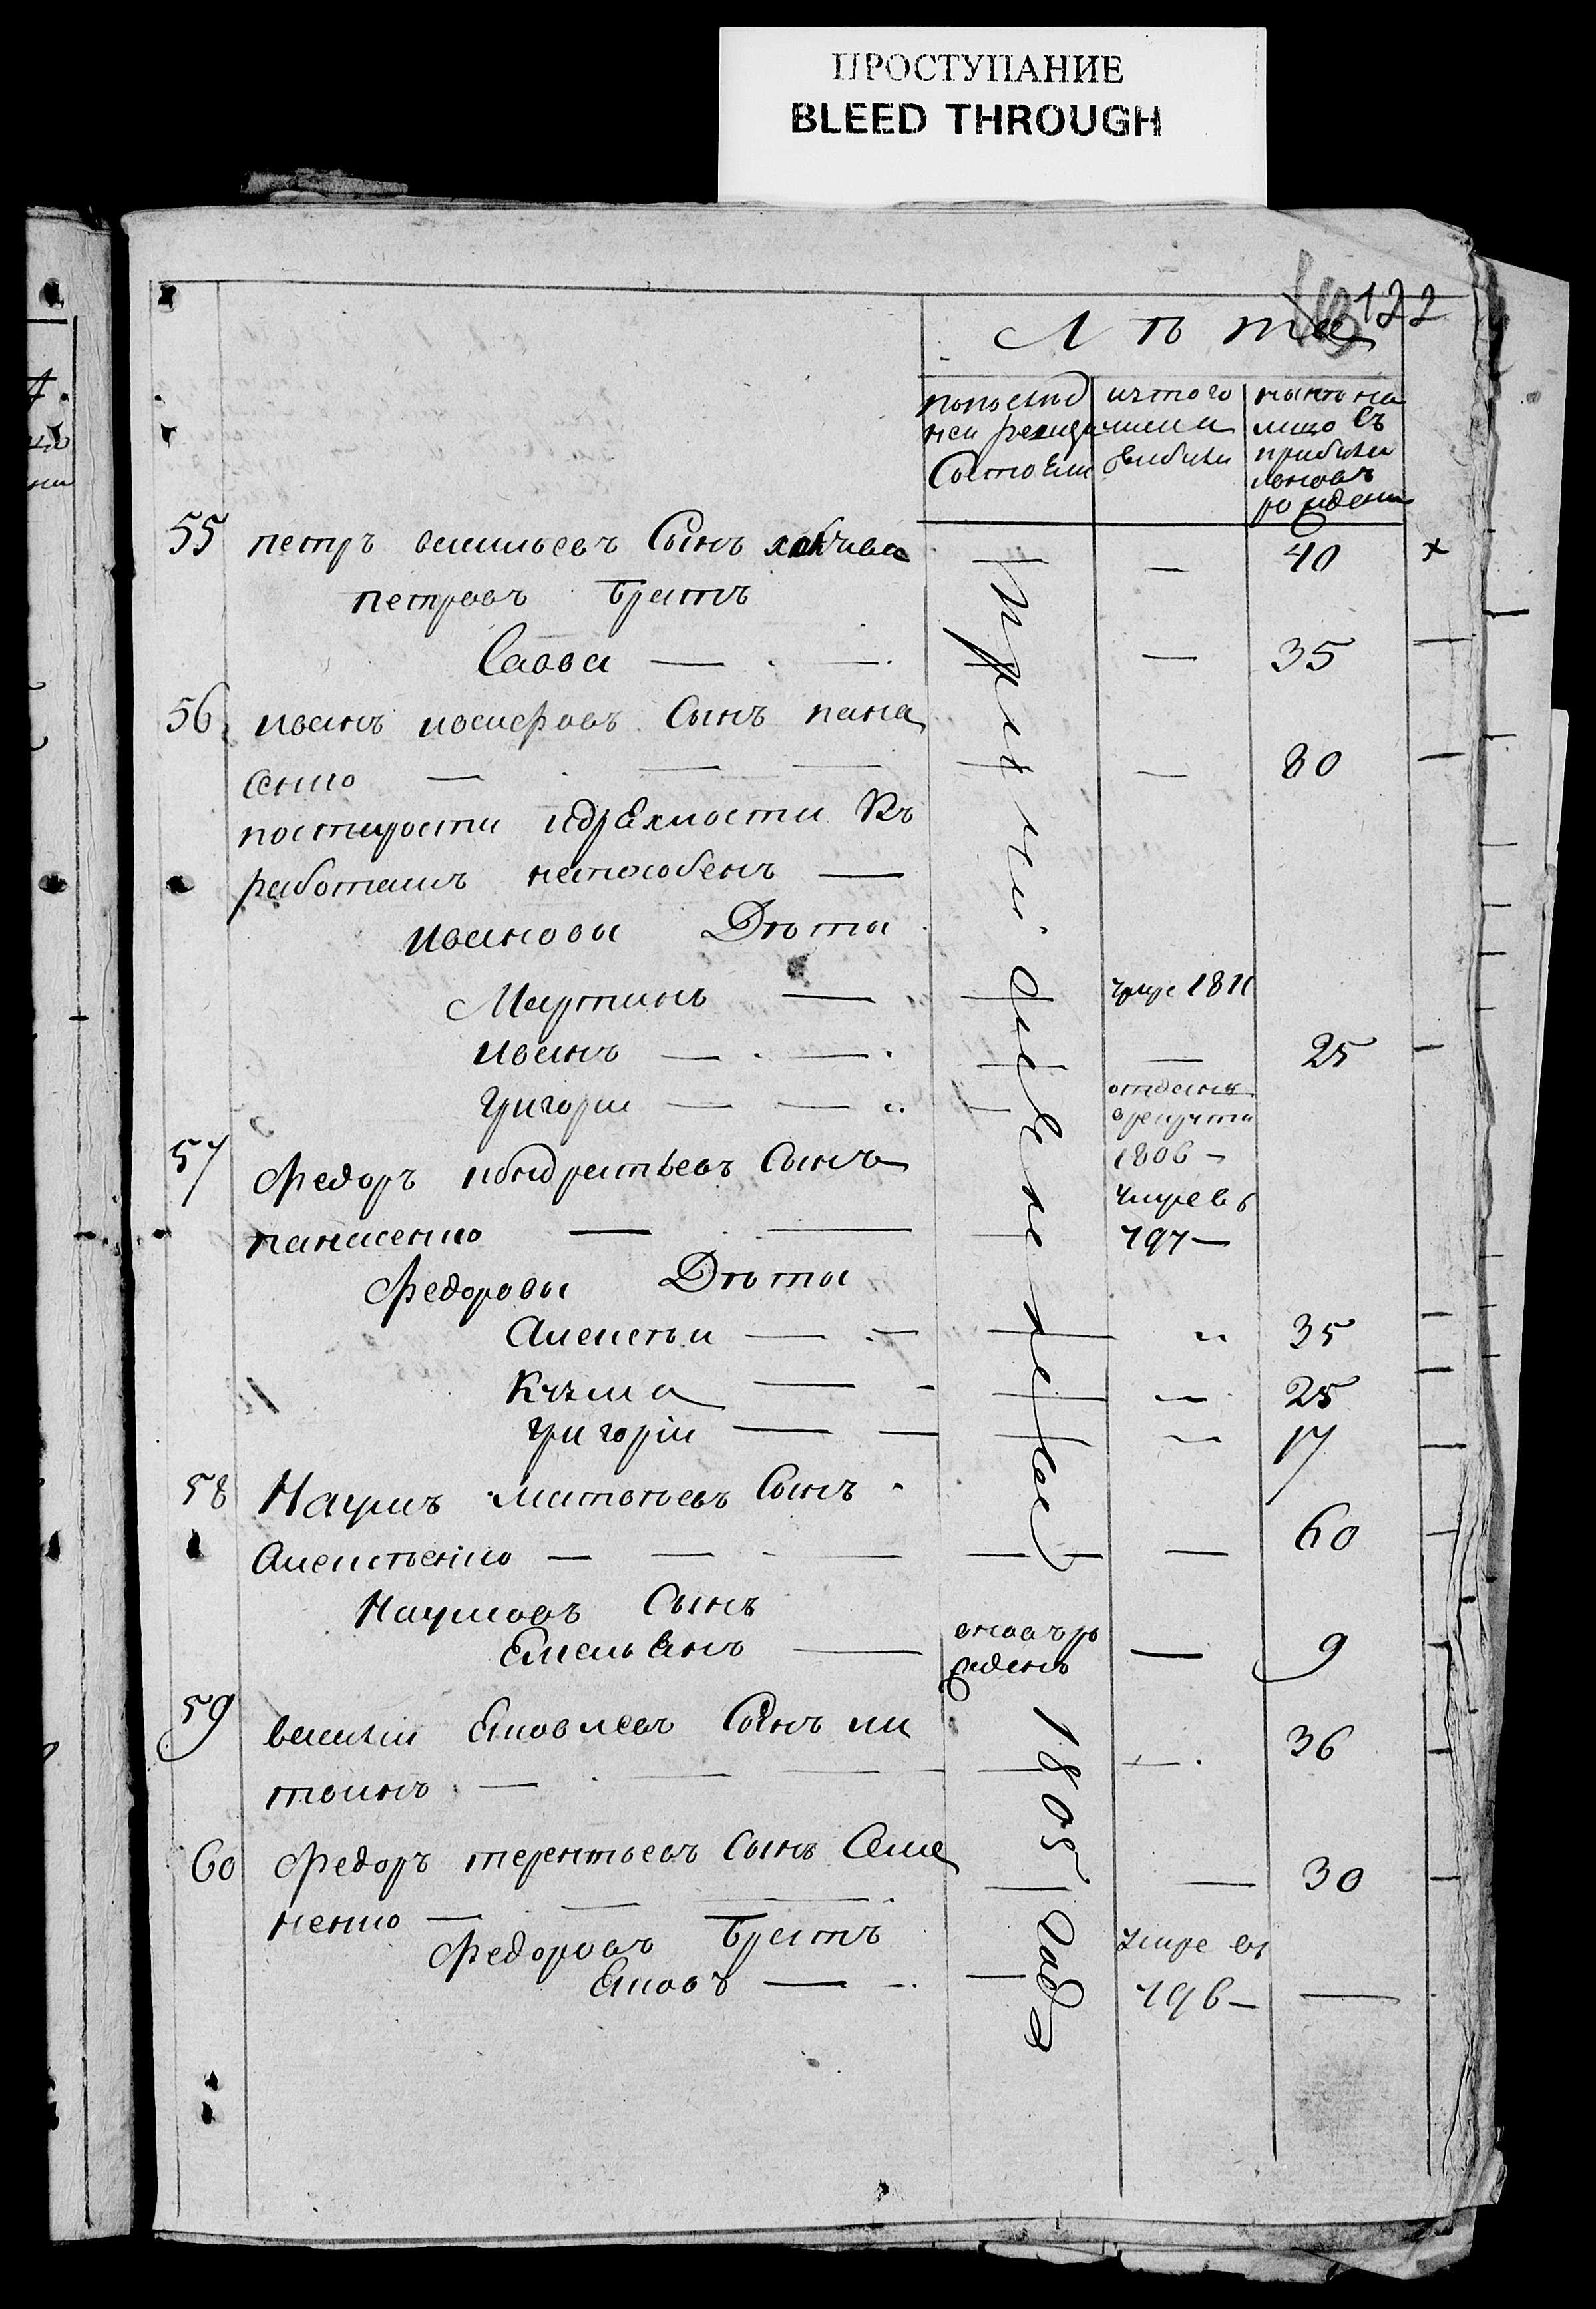 ПРОСТУПАНИЕ
BLEED THROUGH
122
Лѣта
попослѣд
ней ревиди
Состоели
изтого
числа
выбыли
нынѣ на
лицо Съ
прибыли
ми
рождени
55 петръ васильевъ Сынъ — 40
петровъ братъ
Савва — — 35
56 иванъ Сынъ пана
сенко — — 80
постарости идряхлости Къ
работамъ неспособенъ —
ивановы Дѣти
Мартинъ — умре 1811
иванъ — — 25
григори — отданъ
врекруты
1806 —
57 Федоръ кондратьевъ Сынъ
панасенко — умре въ
797 —
Федоровы Дѣти
Алексѣи — 35
Кузма — 25
григоріи — 17
58 Наумъ матвѣевъ Сынъ
Алексѣенко — — 60
Наумовъ Сынъ
Емельянъ — вновь ро
жденъ — 9
59 василіи Яковлевъ Сынъ ли
твинъ — 36
60 Федоръ терентьевъ Сынъ Семе
ненко — — 30
Федоровъ братъ
Яковъ — умре въ
796 — —
1805 года